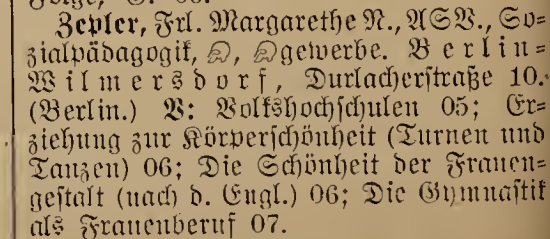 Zepler, Frl. Margarethe N., ASV., So-
zialpädagogik, gewerbe. Berlin-
Wilmersdorf, Durlacherstraße 10.
(Berlin.) V: Volkshochschulen 05; Er-
ziehung zur Körperschönheit (Turnen und
Tanzen) 06; Die Schönheit der Frauen-
gestalt (nach d. Engl.) 06; Die Gymnastik
als Frauenberuf 07.